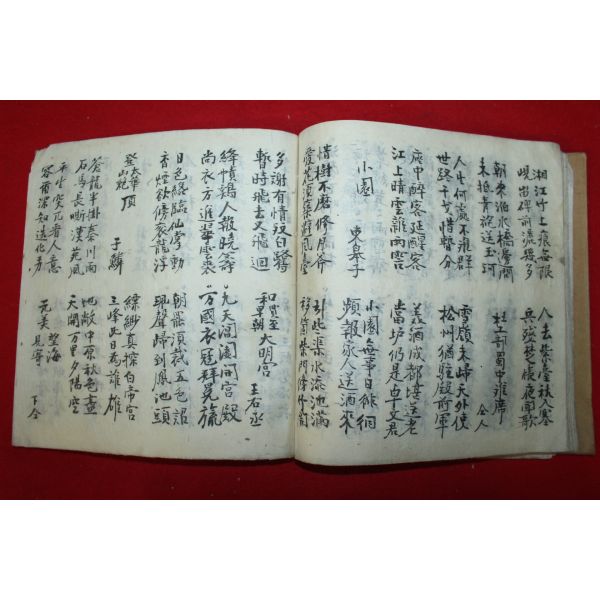 湘江竹上痕無限
峴首碑前洒幾多
人去紫臺秋入塞
兵殘楚帳夜聞歌
朝來泊水橋邊問
未抵青袍送玉珂
杜工部蜀中離席
仝人
人生何處不離群
世路干戈惜暫分
雪嶺未歸天外使
松州猶駐殿前軍
座中醉客延醒客
江上晴雲雜雨雲
美酒成都堪送老
當垆仍是卓文君
小園
東皐子
小園無事日徘徊
頻報家人送酒來
惜樹不磨修月斧
愛花須築避風臺
引些渠水添池滿
移 柴門傍竹開
多謝有情双白鷺
暫時飛去又飛迴
和賈至
早朝大明宮
王右丞
絳幘鷄人報曉籌
尚衣方進翠雲裘
九天閶闔開宮殿
万國衣冠拜冕旒
日色纔臨仙掌動
香煙欲傍袞龍浮
朝罷須裁五色詔
珮聲歸到鳳池頭
登太華
山絶頂
于鱗
縹緲真探白帝宮
三峰此日為誰雄
蒼龍半掛秦川雨
石馬長嘶漢苑風
地敞中原秋色盡
天開万里夕陽空
平生突兀看人意
容爾深知造化功
望海
見寄
下仝